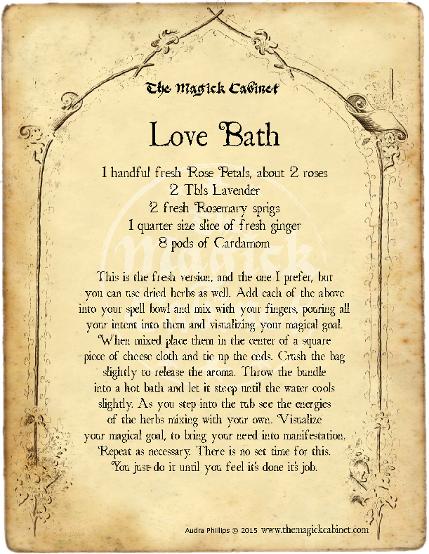 The Magick Cabinet
Love Bath
1 handful fresh Rose Petals, about 2 roses
2 Tbls Lavender
2 fresh Rosemary sprigs
1 quarter size slice of fresh ginger
8 pods of Cardamom
This is the fresh version, and the one I prefer, but
you can use dried herbs as well. Add each of the above
into your spell bowl and mix with your fingers, pouring all
your intent into them and visualizing your magical goal.
When mixed place them in the center of a square
piece of cheese cloth and tie up the ends. Crush the bag
slightly to release the aroma. Throw the bundle
into a hot bath and let it steep until the water cools
slightly. As you step into the tub see the energies
of the herbs mixing with your own. Visualize
your magical goal, to bring your need into manifestation.
Repeat as necessary. There is no set time for this.
You just do it until you feel it's done it's job.
Audra Phillips © 2015 www.themagickcabinet.com
Magick